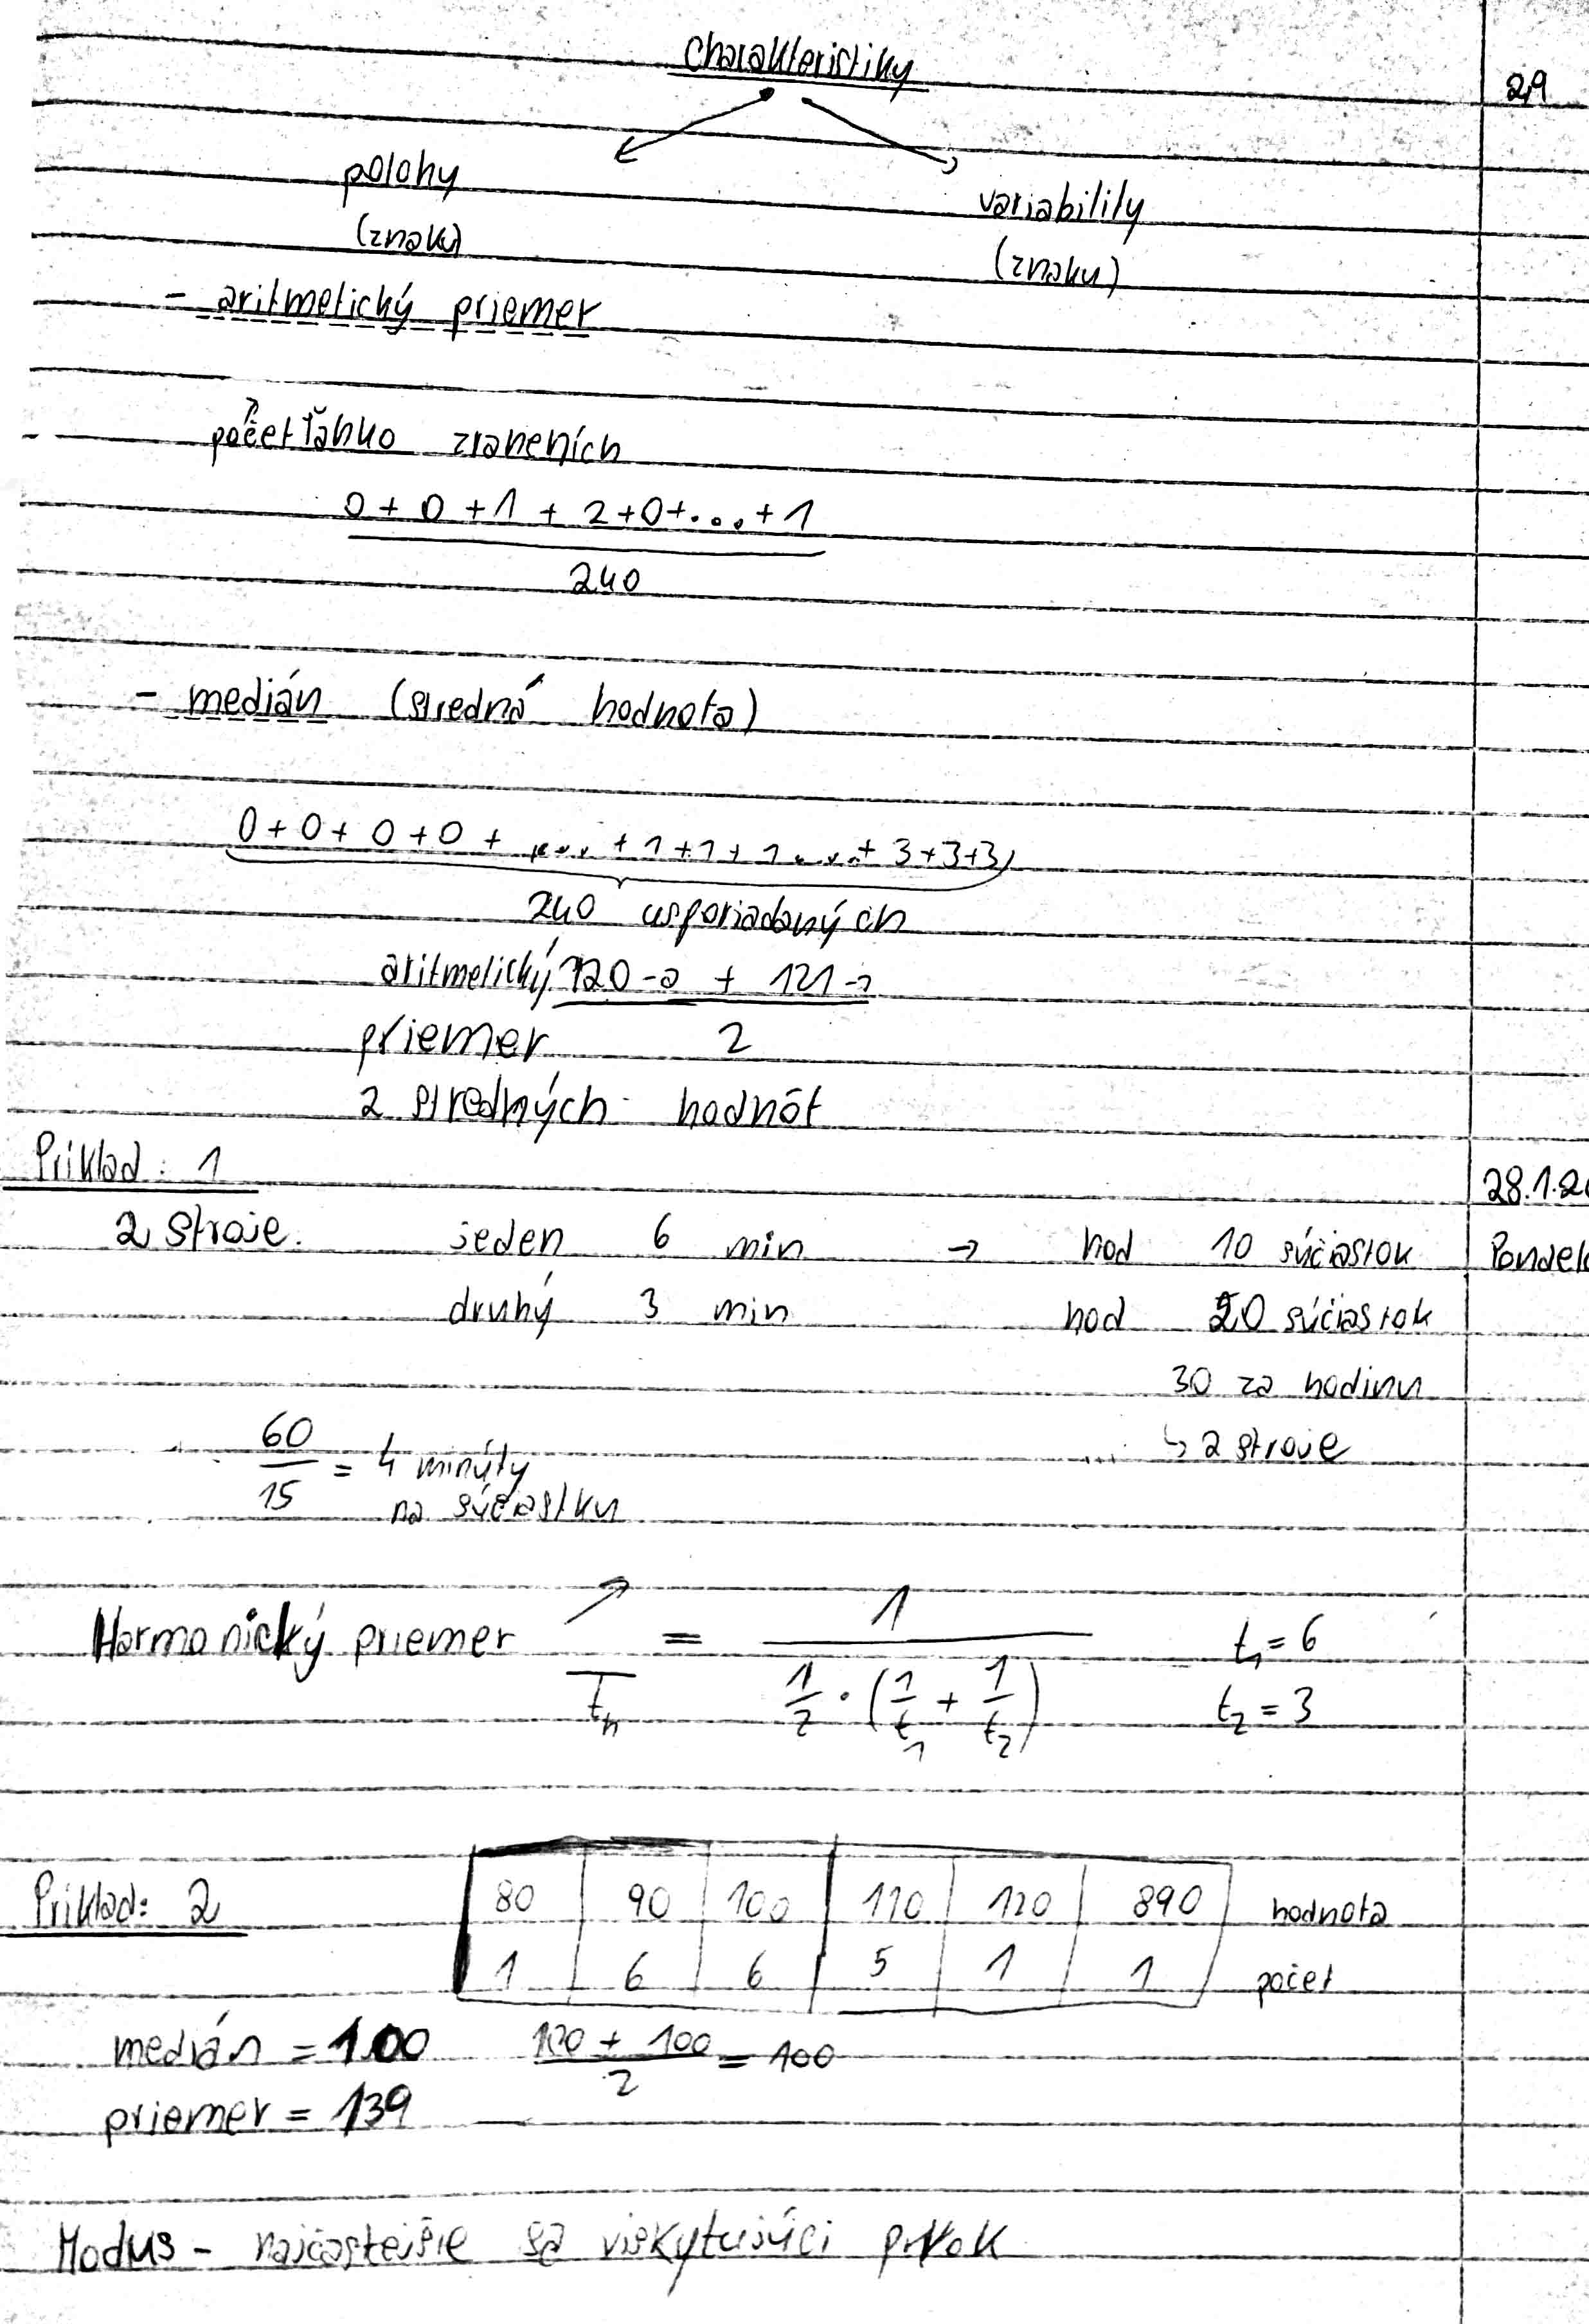 Charakteristiky
2,9
polohy
variability
(znaku)
(znaku)
- aritmetický priemer
počet ľahko zraneních
0 + 0 + 1 + 2 + 0 + ... + 1
240
- medián (stredná hodnota)
0 + 0 + 0 + 0 + .... + 1 + 1 + 1 .... + 3 + 3 + 3
240 usporiadaných
aritmetický 120-a + 121-a
priemer 2
2 stredných hodnôt
Priklad: 1
28.1.20
2 stroje. jeden 6 min → hod 10 súčiastok Pondelo
druhý 3 min hod 20 súčiastok
30 za hodinu
↳ 2 stroje
60/15 = 4 minúty
na súčiastku
Harmonický priemer t̅h = 1 / (1/2 · (1/t1 + 1/t2)) t1 = 6
t2 = 3
Priklad: 2 80 90 100 110 120 890 hodnota
1 6 6 5 1 1 počet
medián = 100 (100 + 100)/2 = 100
priemer = 139
Modus - najčastejšie sa viskytujúci prvok